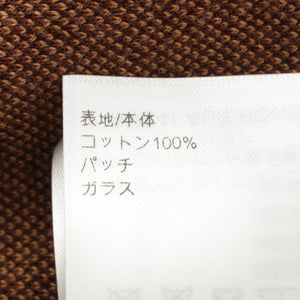 表地/本体
コットン100%
パッチ
ガラス